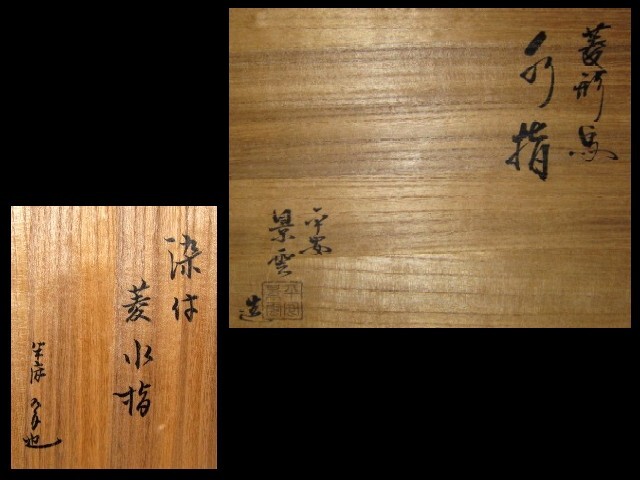 菱形写
水指
平安
景雲
造
染付
菱水指